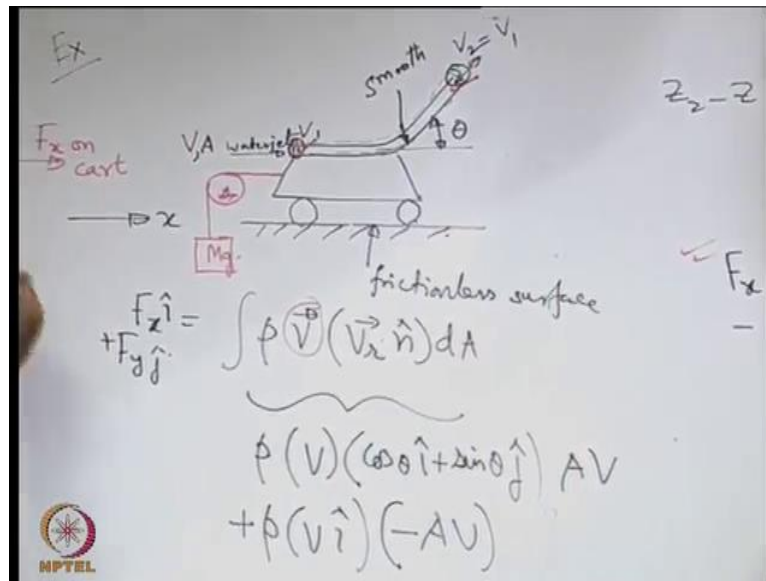 Ex
V₂ = V₁
smooth
Z₂ – Z
Fx on cart
V, A waterjet V₁
θ
x
Mg.
Fx
–
frictionless surface
Fx î + Fy ĵ = ∫ ρ V⃗ (V⃗r n̂) dA
ρ (V) (cosθ î + sinθ ĵ) AV
+ρ(V î) (-AV)
NPTEL